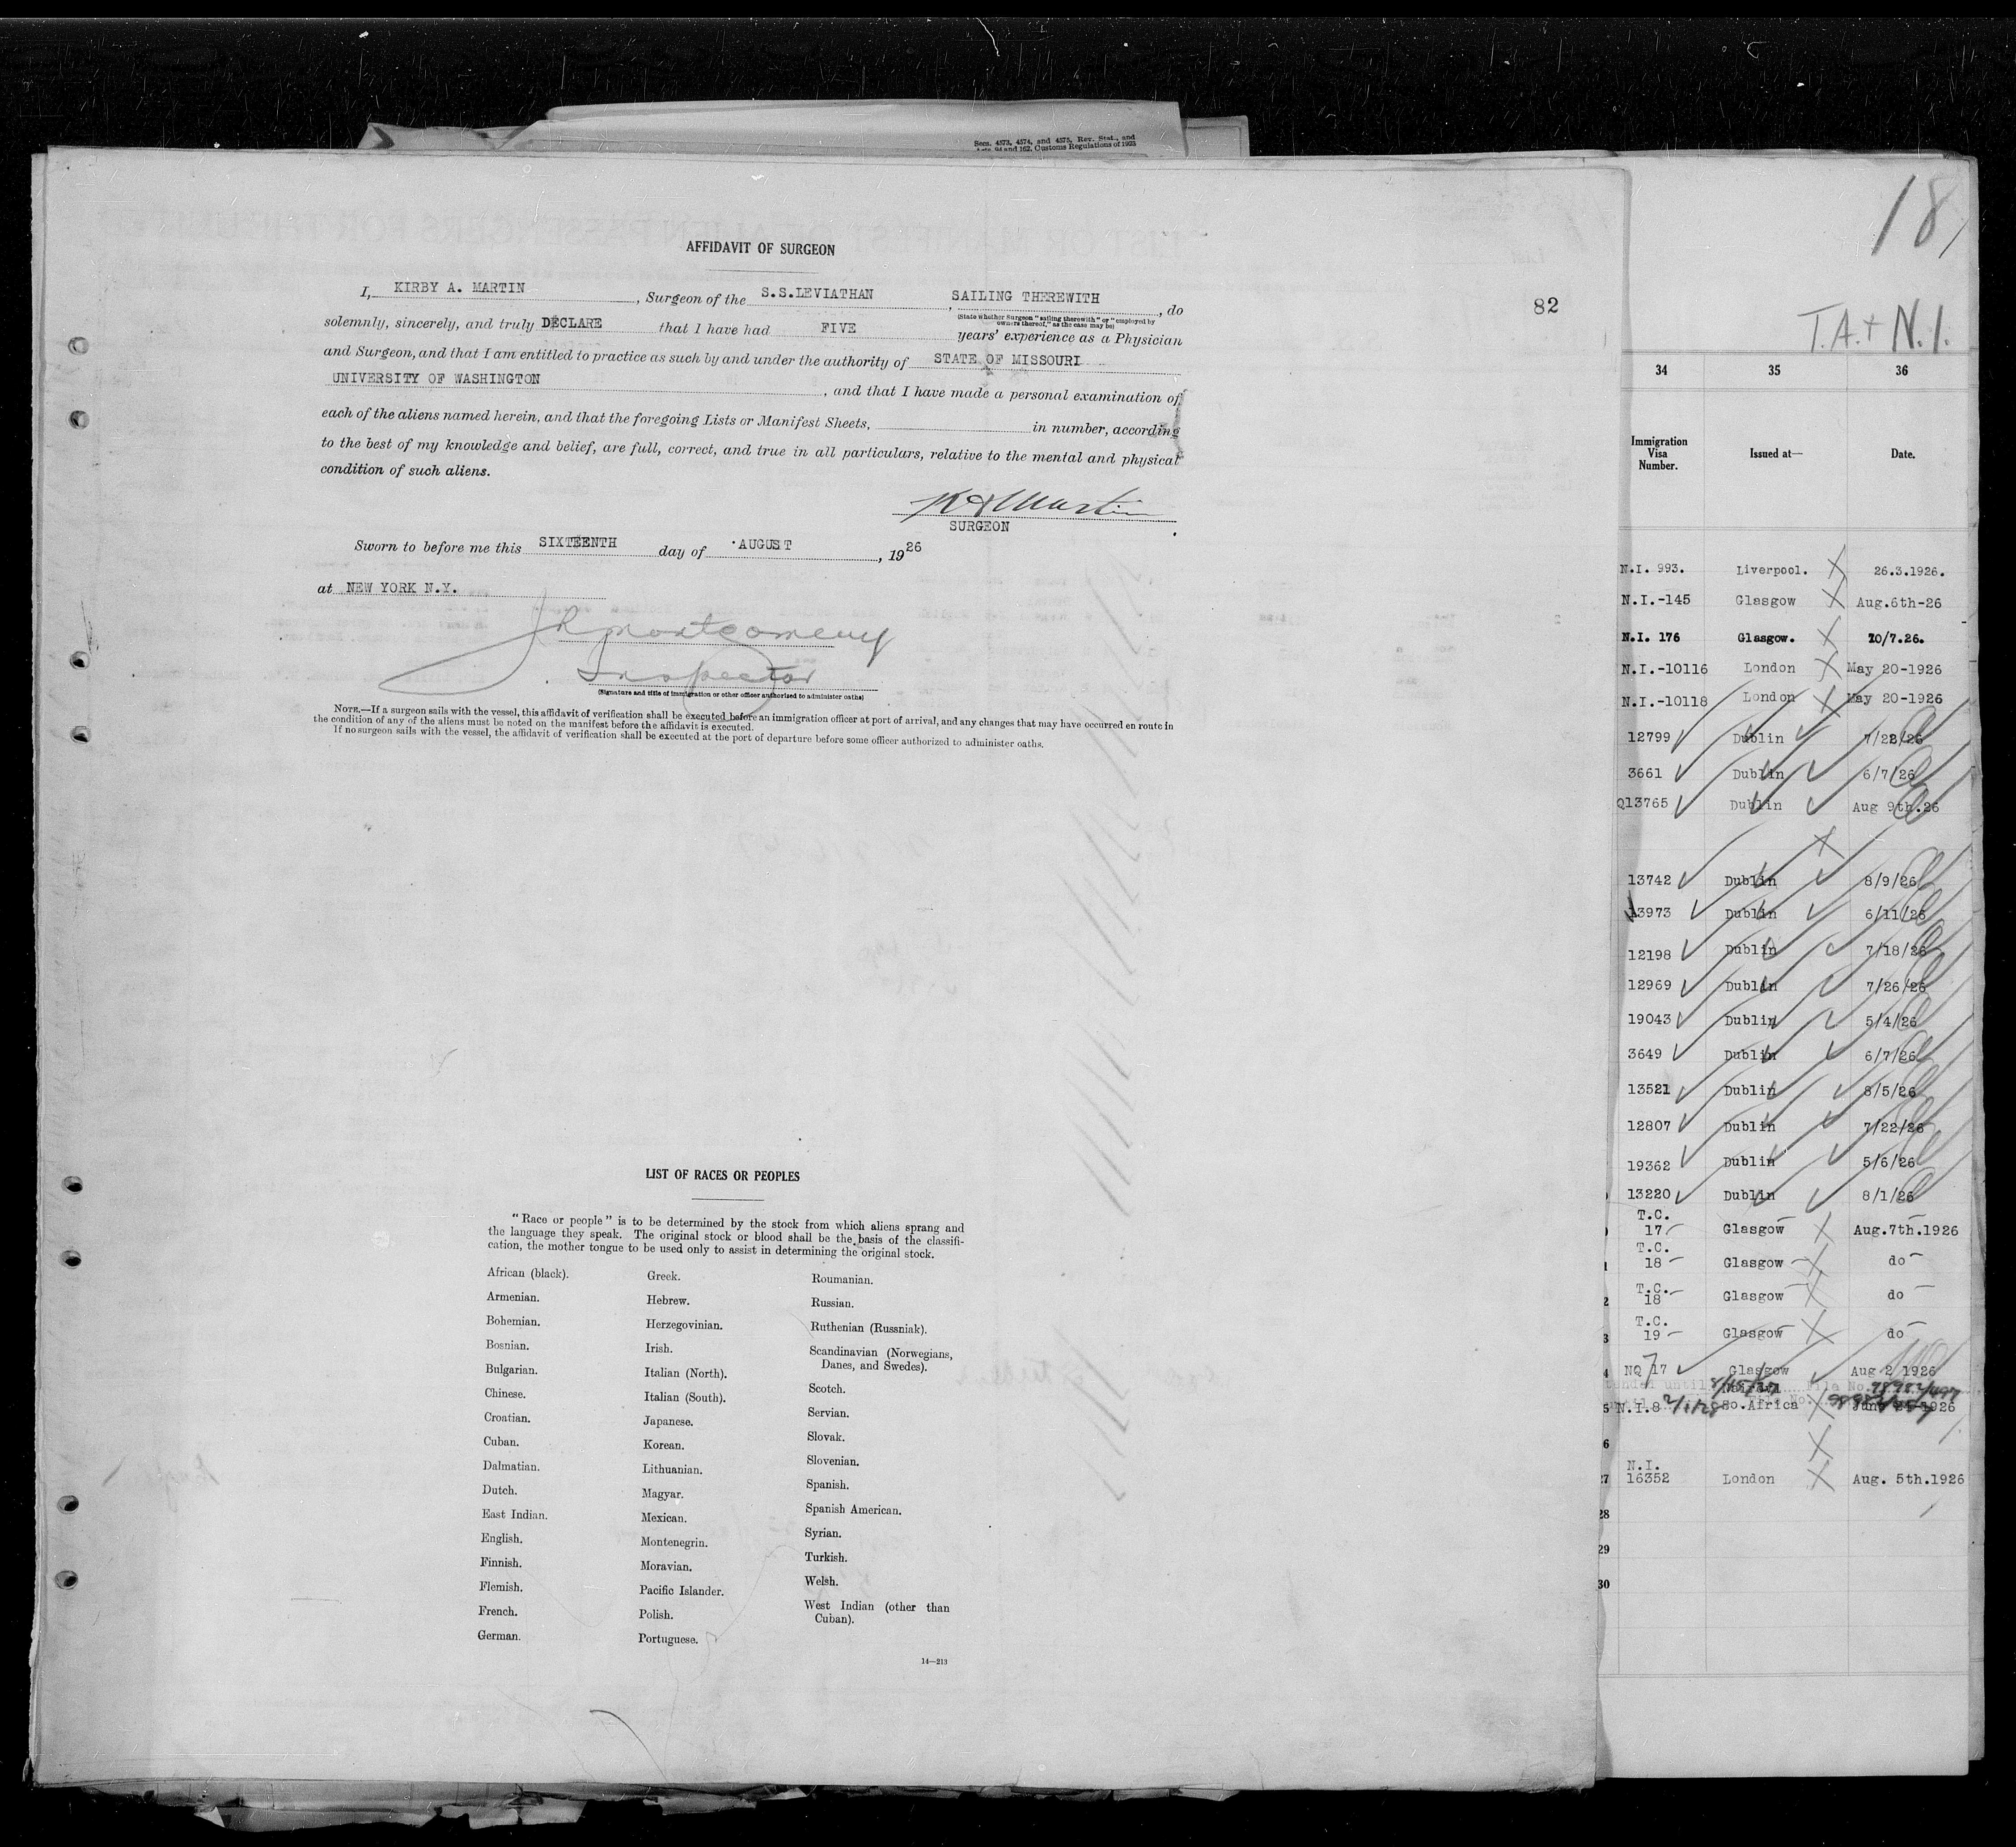 Secs. 4573, 4574, and 4575, Rev. Stat., and
and 162, Customs Regulations of 1923
AFFIDAVIT OF SURGEON
I, KIRBY A. MARTIN, Surgeon of the S.S.LEVIATHAN, SAILING THEREWITH, do
(State whether Surgeon "sailing therewith" or "employed by
owners thereof," as the case may be)
solemnly, sincerely, and truly DECLARE that I have had FIVE years' experience as a Physician
and Surgeon, and that I am entitled to practice as such by and under the authority of STATE OF MISSOURI
UNIVERSITY OF WASHINGTON, and that I have made a personal examination of
each of the aliens named herein, and that the foregoing Lists or Manifest Sheets, in number, according
to the best of my knowledge and belief, are full, correct, and true in all particulars, relative to the mental and physical
condition of such aliens.
K A Martin
SURGEON
Sworn to before me this SIXTEENTH day of AUGUST, 1926
at NEW YORK N.Y.
J R Montgomery
Inspector
(Signature and title of immigration or other officer authorized to administer oaths)
NOTE.—If a surgeon sails with the vessel, this affidavit of verification shall be executed before an immigration officer at port of arrival, and any changes that may have occurred en route in
the condition of any of the aliens must be noted on the manifest before the affidavit is executed.
If no surgeon sails with the vessel, the affidavit of verification shall be executed at the port of departure before some officer authorized to administer oaths.
82
LIST OF RACES OR PEOPLES
"Race or people" is to be determined by the stock from which aliens sprang and
the language they speak. The original stock or blood shall be the basis of the classifi-
cation, the mother tongue to be used only to assist in determining the original stock.
African (black).
Armenian.
Bohemian.
Bosnian.
Bulgarian.
Chinese.
Croatian.
Cuban.
Dalmatian.
Dutch.
East Indian.
English.
Finnish.
Flemish.
French.
German.
Greek.
Hebrew.
Herzegovinian.
Irish.
Italian (North).
Italian (South).
Japanese.
Korean.
Lithuanian.
Magyar.
Mexican.
Montenegrin.
Moravian.
Pacific Islander.
Polish.
Portuguese.
Roumanian.
Russian.
Ruthenian (Russniak).
Scandinavian (Norwegians,
Danes, and Swedes).
Scotch.
Servian.
Slovak.
Slovenian.
Spanish.
Spanish American.
Syrian.
Turkish.
Welsh.
West Indian (other than
Cuban).
14—213
18
T.A. + N.I.
34 35 36
Immigration
Visa
Number.
Issued at—
Date.
N.I. 993. Liverpool. X 26.3.1926.
N.I.-145 Glasgow X Aug.6th-26
N.I. 176 Glasgow. X 10/7.26.
N.I.-10116 London X May 20-1926
N.I.-10118 London X May 20-1926
12799 Dublin 7/22/26
3661 Dublin 6/7/26
Q13765 Dublin Aug 9th.26
X
13742 Dublin 8/9/26
13973 Dublin 6/11/26
12198 Dublin 7/18/26
12969 Dublin 7/26/26
19043 Dublin 5/4/26
3649 Dublin 6/7/26
13521 Dublin 8/5/26
12807 Dublin 7/22/26
19362 Dublin 5/6/26
13220 Dublin 8/1/26
T.C.
17 Glasgow X Aug.7th.1926
T.C.
18 Glasgow X do
T.C.
18 Glasgow X do
T.C.
19 Glasgow X do
NQ 17 Glasgow Aug 2 1926
until File No.
N.I.8 So.Africa X June 21-1926
X
N.I.
16352 London X Aug. 5th.1926
28
29
30